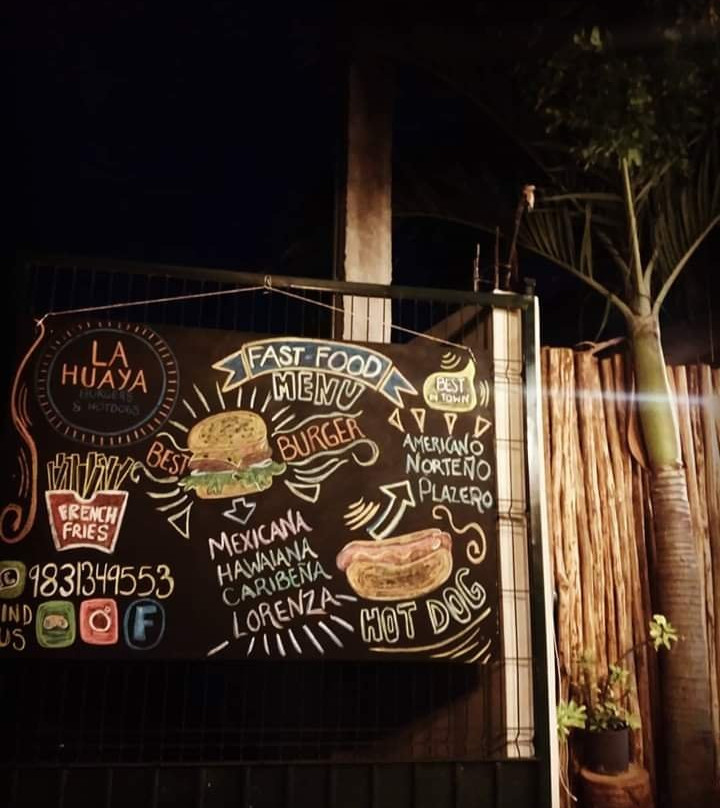 LA
HUAYA
BURGERS
& HOTDOGS
FAST FOOD
MENU
BEST
IN TOWN
BEST BURGER
AMERICANO
NORTEÑO
PLAZERO
FRENCH
FRIES
MEXICANA
HAWAIANA
CARIBEÑA
LORENZA
HOT DOG
9831349553
IND
US
F